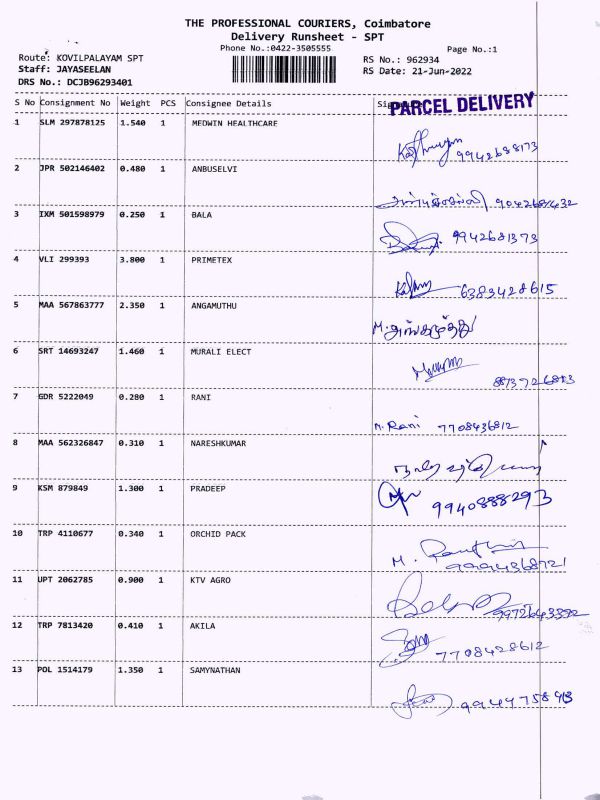 THE PROFESSIONAL COURIERS, Coimbatore
Delivery Runsheet - SPT
Phone No.:0422-3505555
Page No.:1
Route: KOVILPALAYAM SPT
RS No.: 962934
Staff: JAYASEELAN
RS Date: 21-Jun-2022
DRS No.: DCJB96293401
S No Consignment No Weight PCS Consignee Details
PARCEL DELIVERY
1 SLM 297878125 1.540 1 MEDWIN HEALTHCARE
9942688173
2 JPR 502146402 0.480 1 ANBUSELVI
9042681432
3 IXM 501598979 0.250 1 BALA
9942681373
4 VLI 299393 3.800 1 PRIMETEX
6383428615
5 MAA 567863777 2.350 1 ANGAMUTHU
M. அங்கமுத்து
6 SRT 14693247 1.460 1 MURALI ELECT
7 GDR 5222049 0.280 1 RANI
M. Rani 7708436812
8 MAA 562326847 0.310 1 NARESHKUMAR
9 KSM 879849 1.300 1 PRADEEP
9940888293
10 TRP 4110677 0.340 1 ORCHID PACK
11 UPT 2062785 0.900 1 KTV AGRO
9972643392
12 TRP 7813420 0.410 1 AKILA
7708428612
13 POL 1514179 1.350 1 SAMYNATHAN